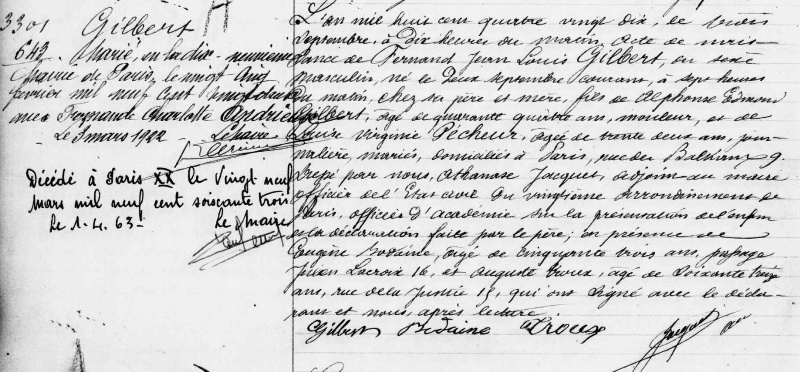 3301
Gilbert
643. Marié, en la dix-neuvième
Mairie de Paris, le vingt cinq
février mil neuf cent vingt deux
avec Fernande Charlotte Andrieu
Le 3 mars 1922 Le Maire
Décédé à Paris XX le Vingt neuf
Mars mil neuf cent soixante trois
Le 1-4.63- Le Maire
L'an mil huit cent quatre vingt dix, le trois
Septembre, à Dix heures du matin, Acte de nais-
sance de Fernand Jean Louis Gilbert, du sexe
masculin, né le Deux septembre courant, à sept heures
du matin, chez ses père et mère, fils de Alphonse Edmond
Gilbert, âgé de quarante quatre ans, mouleur, et de
Louise Virginie Pécheur, âgée de trente deux ans, jour-
nalière, mariés, domiciliés à Paris, rue des Balkans 9.
Dressé par nous, Athanase Jacquet, adjoint au maire
officier de l'Etat civil du vingtième arrondissement de
Paris, officier d'académie sur la présentation de l'enfant
et la déclaration faite par le père; en présence de
Eugène Bodaine, âgé de cinquante trois ans, passage
Julien Lacroix 16, et Auguste Troux, âgé de soixante treize
ans, rue de la Justice 15, qui ont signé avec le décla-
rant et nous, après lecture.
Gilbert Bodaine Troux Jacquet